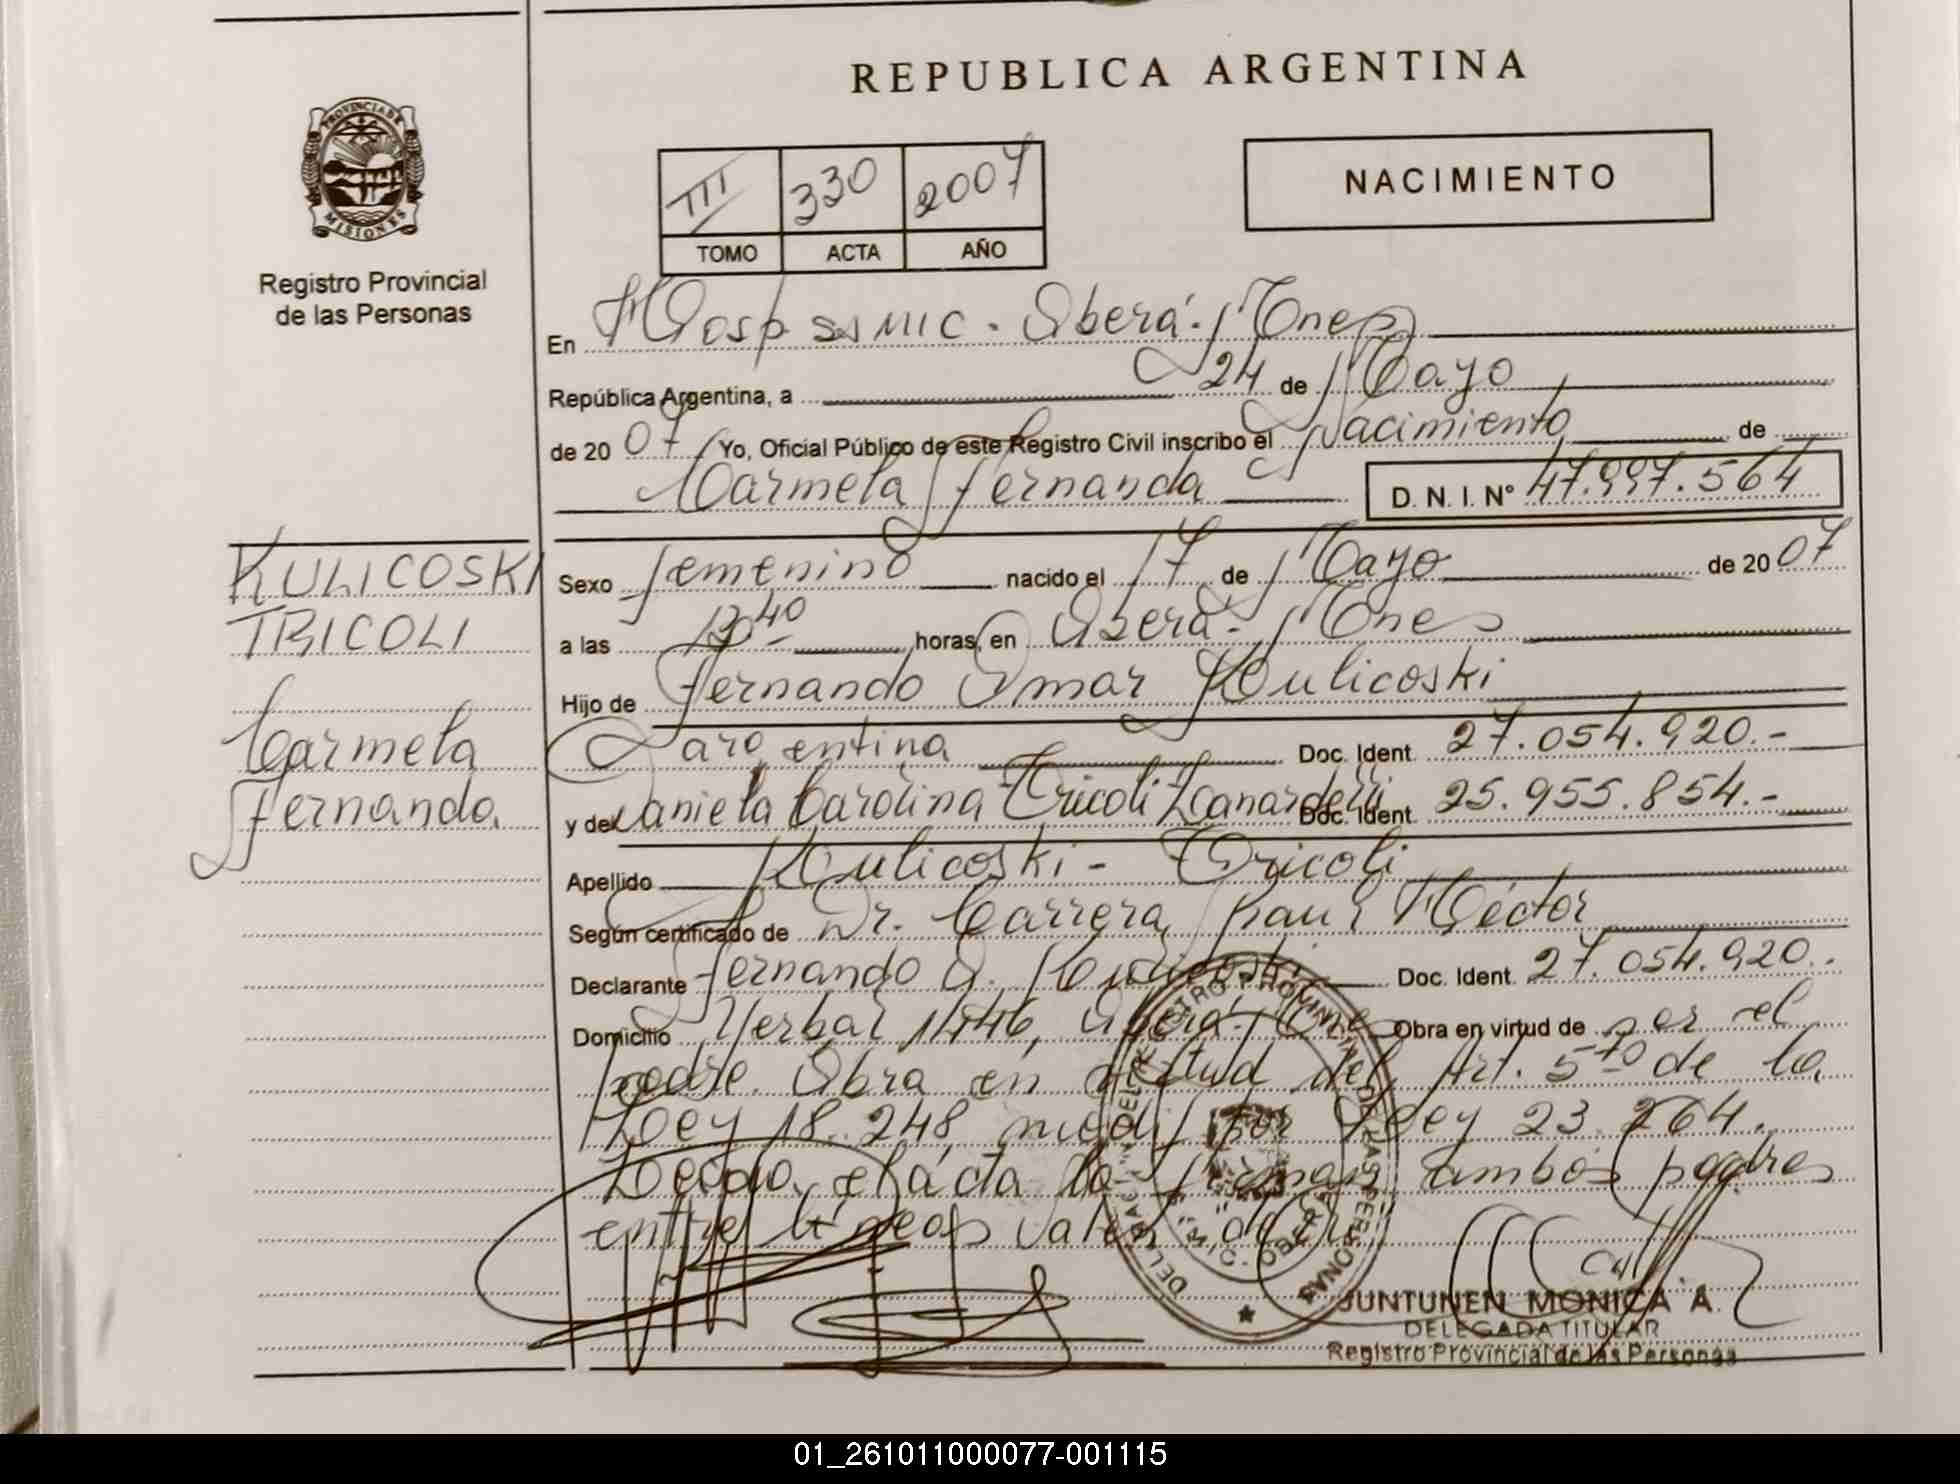 REPUBLICA ARGENTINA
PROVINCIA DE MISIONES
Registro Provincial
de las Personas
III 330 2007
TOMO ACTA AÑO
NACIMIENTO
En Hosp SSMIC. Oberá. Mnes
República Argentina, a 24 de Mayo
de 2007 Yo, Oficial Público de este Registro Civil inscribo el Nacimiento de
Carmela Fernanda D. N. I. Nº 47.997.564
KULICOSKI
TRICOLI
Carmela
Fernanda.
Sexo femenino nacido el 17 de Mayo de 2007
a las horas, en Oberá. Mnes
Hijo de Fernando Omar Kulicoski
argentina Doc. Ident. 27.054.920.-
y de Daniela Carolina Tricoli Zanardelli Doc. Ident. 25.955.854.-
Apellido Kulicoski - Tricoli
Según certificado de Dr. Carrera, Raul Héctor
Declarante Fernando O. Kulicoski Doc. Ident. 27.054.920..
Domicilio Yerbal 1446, Oberá. Mnes Obra en virtud de por el
padre. Obra en virtud del Art. 5to de la
Ley 18.248, modif por Ley 23.264.
Leída el acta la firman ambos padres
entre líneas vale
DEL REGISTRO PROVINCIAL DE LAS PERSONAS
OBERA
JUNTUNEN MONICA A.
DELEGADA TITULAR
Registro Provincial de las Personas
01_261011000077-001115